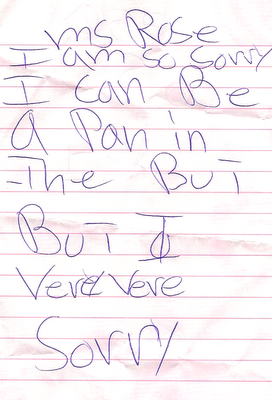 ms Rose
I am so sorry
I can Be
a Pan in
The But
But I
Vere Vere
Sorry